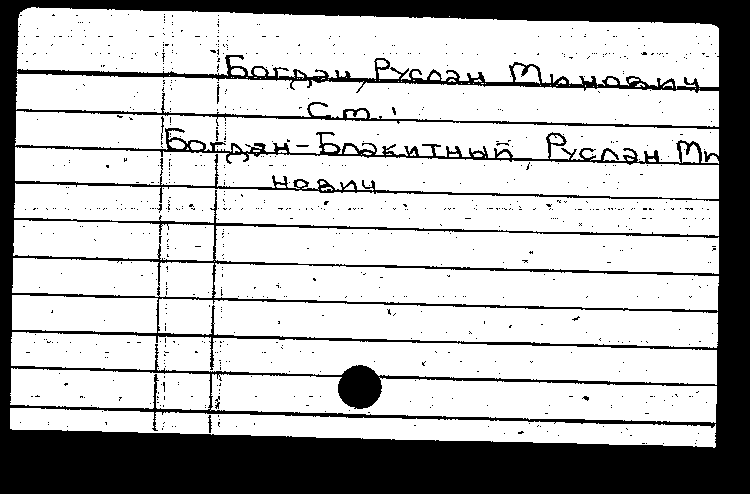 Богдан, Руслан Минович
Ст.:
Богдан-Блакитный, Руслан Ми
нович